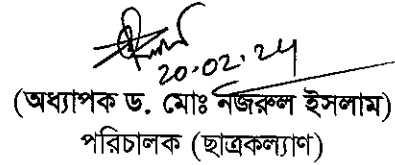 20.02.24
(অধ্যাপক ড. মোঃ নজরুল ইসলাম)
পরিচালক (ছাত্রকল্যাণ)